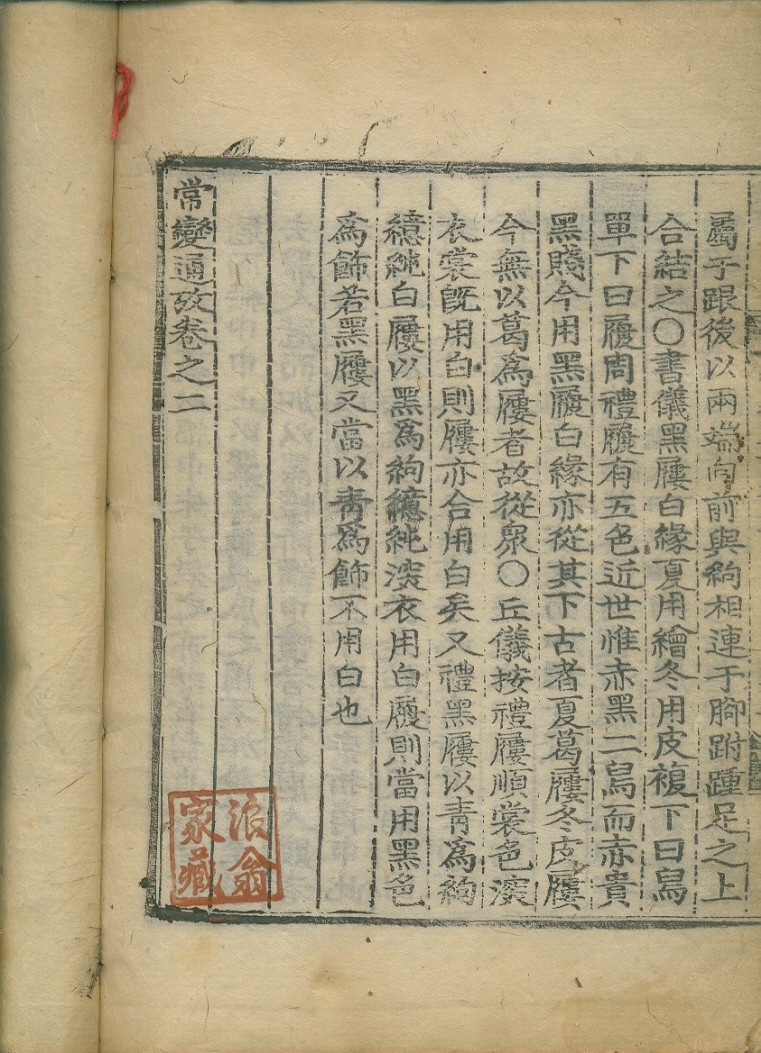 屬于跟後以兩端向前與絇相連于脚跗踵足之上
合結之○書儀黑屨白緣夏用繒冬用皮複下曰舃
單下曰屨周禮屨有五色近世惟赤黑二舃而赤貴
黑賤今用黑屨白緣亦從其下古者夏葛屨冬皮屨
今無以葛爲屨者故從衆○丘儀按禮屨順裳色深
衣裳旣用白則屨亦合用白矣又禮黑屨以靑爲絇
繶純白屨以黑爲絇繶純深衣用白屨則當用黑色
爲飾若黑屨又當以靑爲飾不用白也
常變通攷卷之二
浪翁
家藏